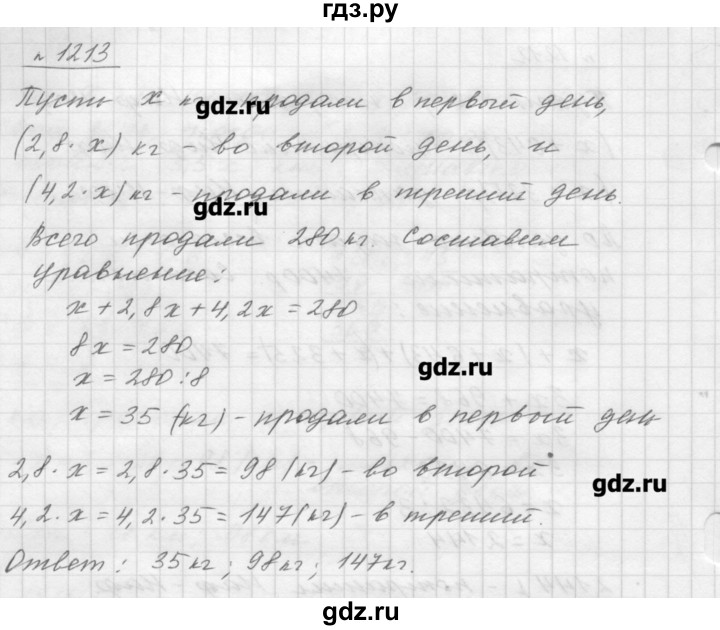 гдз.ру
№ 1213
Пусть x кг продали в первый день,
gdz.ru
(2,8·x) кг - во второй день, и
(4,2·x) кг - продали в третий день.
gdz.ru
Всего продали 280 кг. Составим
уравнение:
x+2,8x+4,2x=280
8x=280
x=280:8
gdz.ru
x=35 (кг) - продали в первый день
2,8·x=2,8·35=98(кг) - во второй
gdz.ru
4,2·x=4,2·35=147(кг) - в третий.
Ответ: 35кг; 98кг; 147кг.
gdz.ru